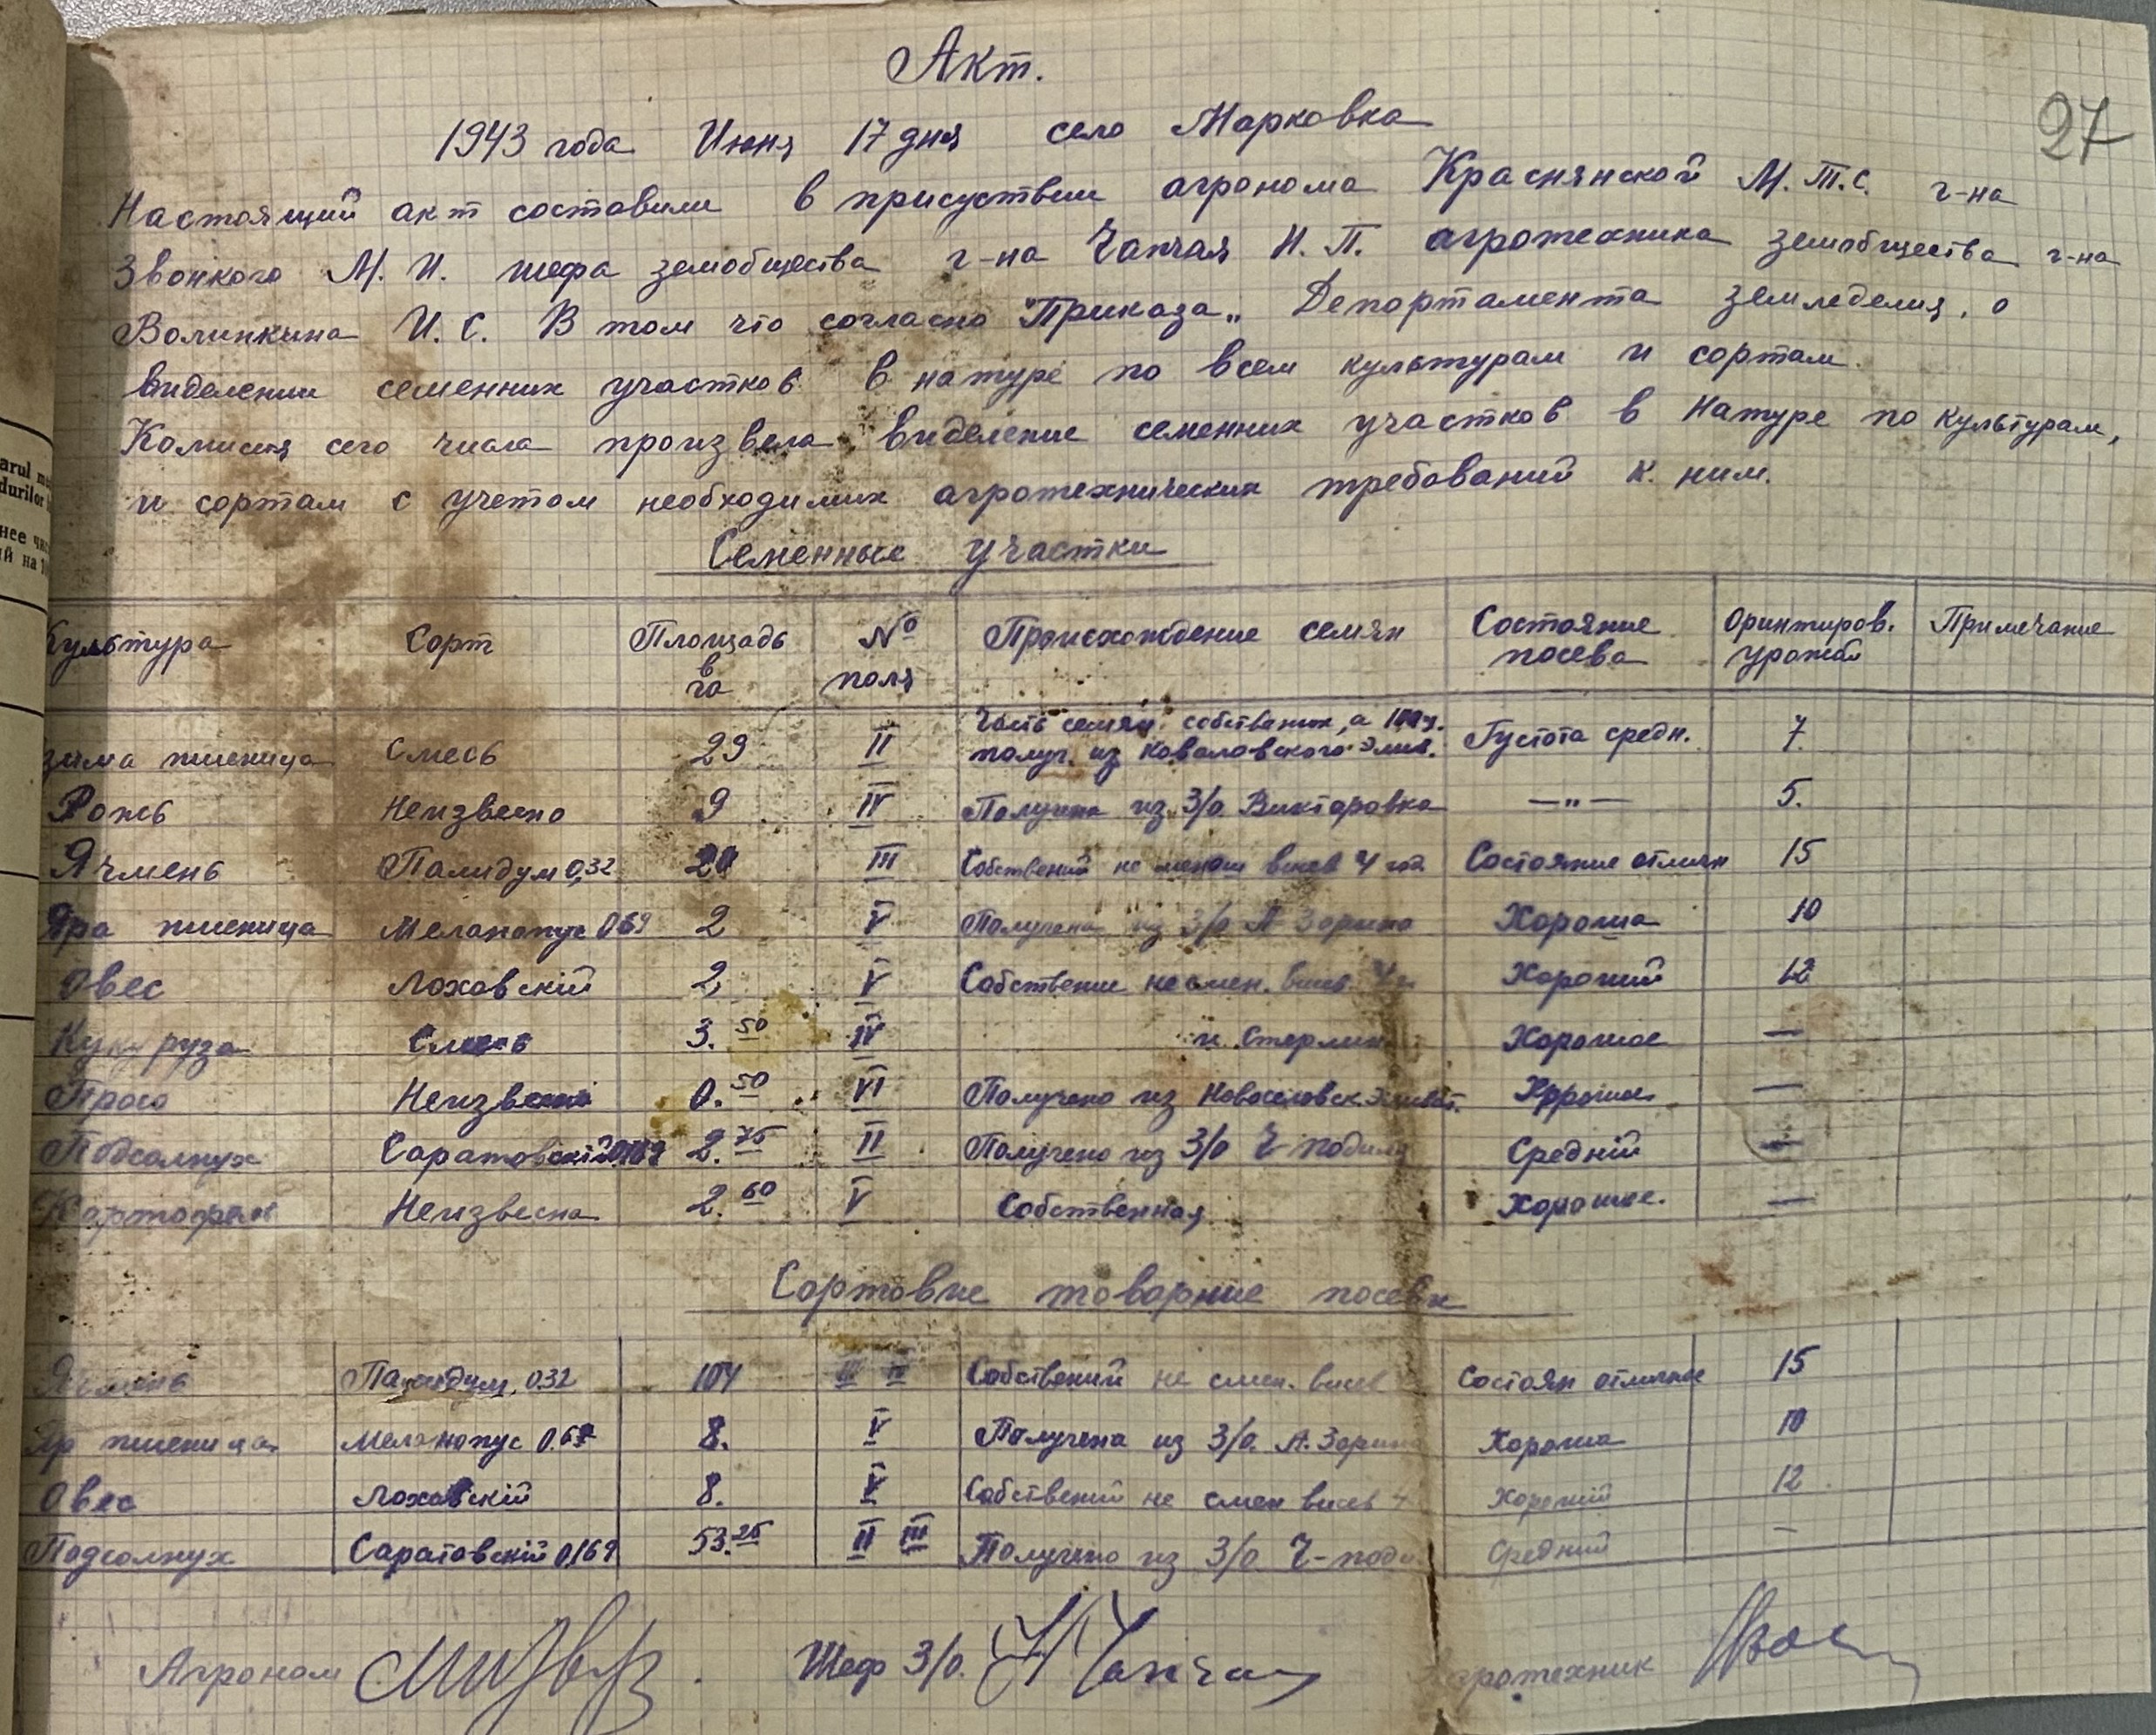 27
Акт.
1943 года Июня 17 дня село Марковка
Настоящий акт составили в присуствии агронома Краснянской М.Т.С. г-на
Звонкого М. И. шефа земобщества г-на Чапчая Н. П. агротехника земобщества г-на
Волинкина И. С. В том что согласно "Приказа„ Департамента земледелия, о
виделении семенних участков в натуре по всем культурам и сортам.
Комисия сего числа произвела виделение семенних участков в натуре по культурам,
и сортам с учетом необходимих агротехнических требований к ним.
Семенные участки
Культура Сорт Площадь в га № поля Происхождение семян Состояние посева Ориентиров. урожай Примечание
Часть семян собствених, а
зима пшеница Смесь 29 II получ. из Коваловского Элив. Густота средн. 7
Рожь Неизвесно 9 IV Получена из З/о Викторовка —„— 5.
Ячмень Палидум 032 III Собствений не менял висев 4 год Состояние отличн 15
Яра пшеница Меланопус 069 2 V Получена из З/о А Зорино Хороша 10
Овес Лоховскій 2, V Собствение не смен. висев. Хороший 12
Кукуруза Смесь 3.50 IV Хорошое —
Просо 0.50 VI Получено из Новоселовск. Элеват. Хорошое —
Подсолнух Саратовскій 0169 2.75 II Получено из З/о Средній —
Картофель Неизвесна 2.60 V Собственная Хорошое. —
Сортовие товарние посеви
Ячмень Палидум 032 104 III IV Собствений не смен. висев Состоян отличное 15
Яр пшеница Меланопус 069 8. V Получена из З/о. А. Зорино Хороша 10
Овес Лоховскій 8. V Собствений не смен висев 4 Хороший 12
Подсолнух Саратовскій 0169 53.25 II III Получено из З/о. Средний —
Агроном Шеф З/о. Н Чапчай Агротехник
arul
durilor
нее
ий на